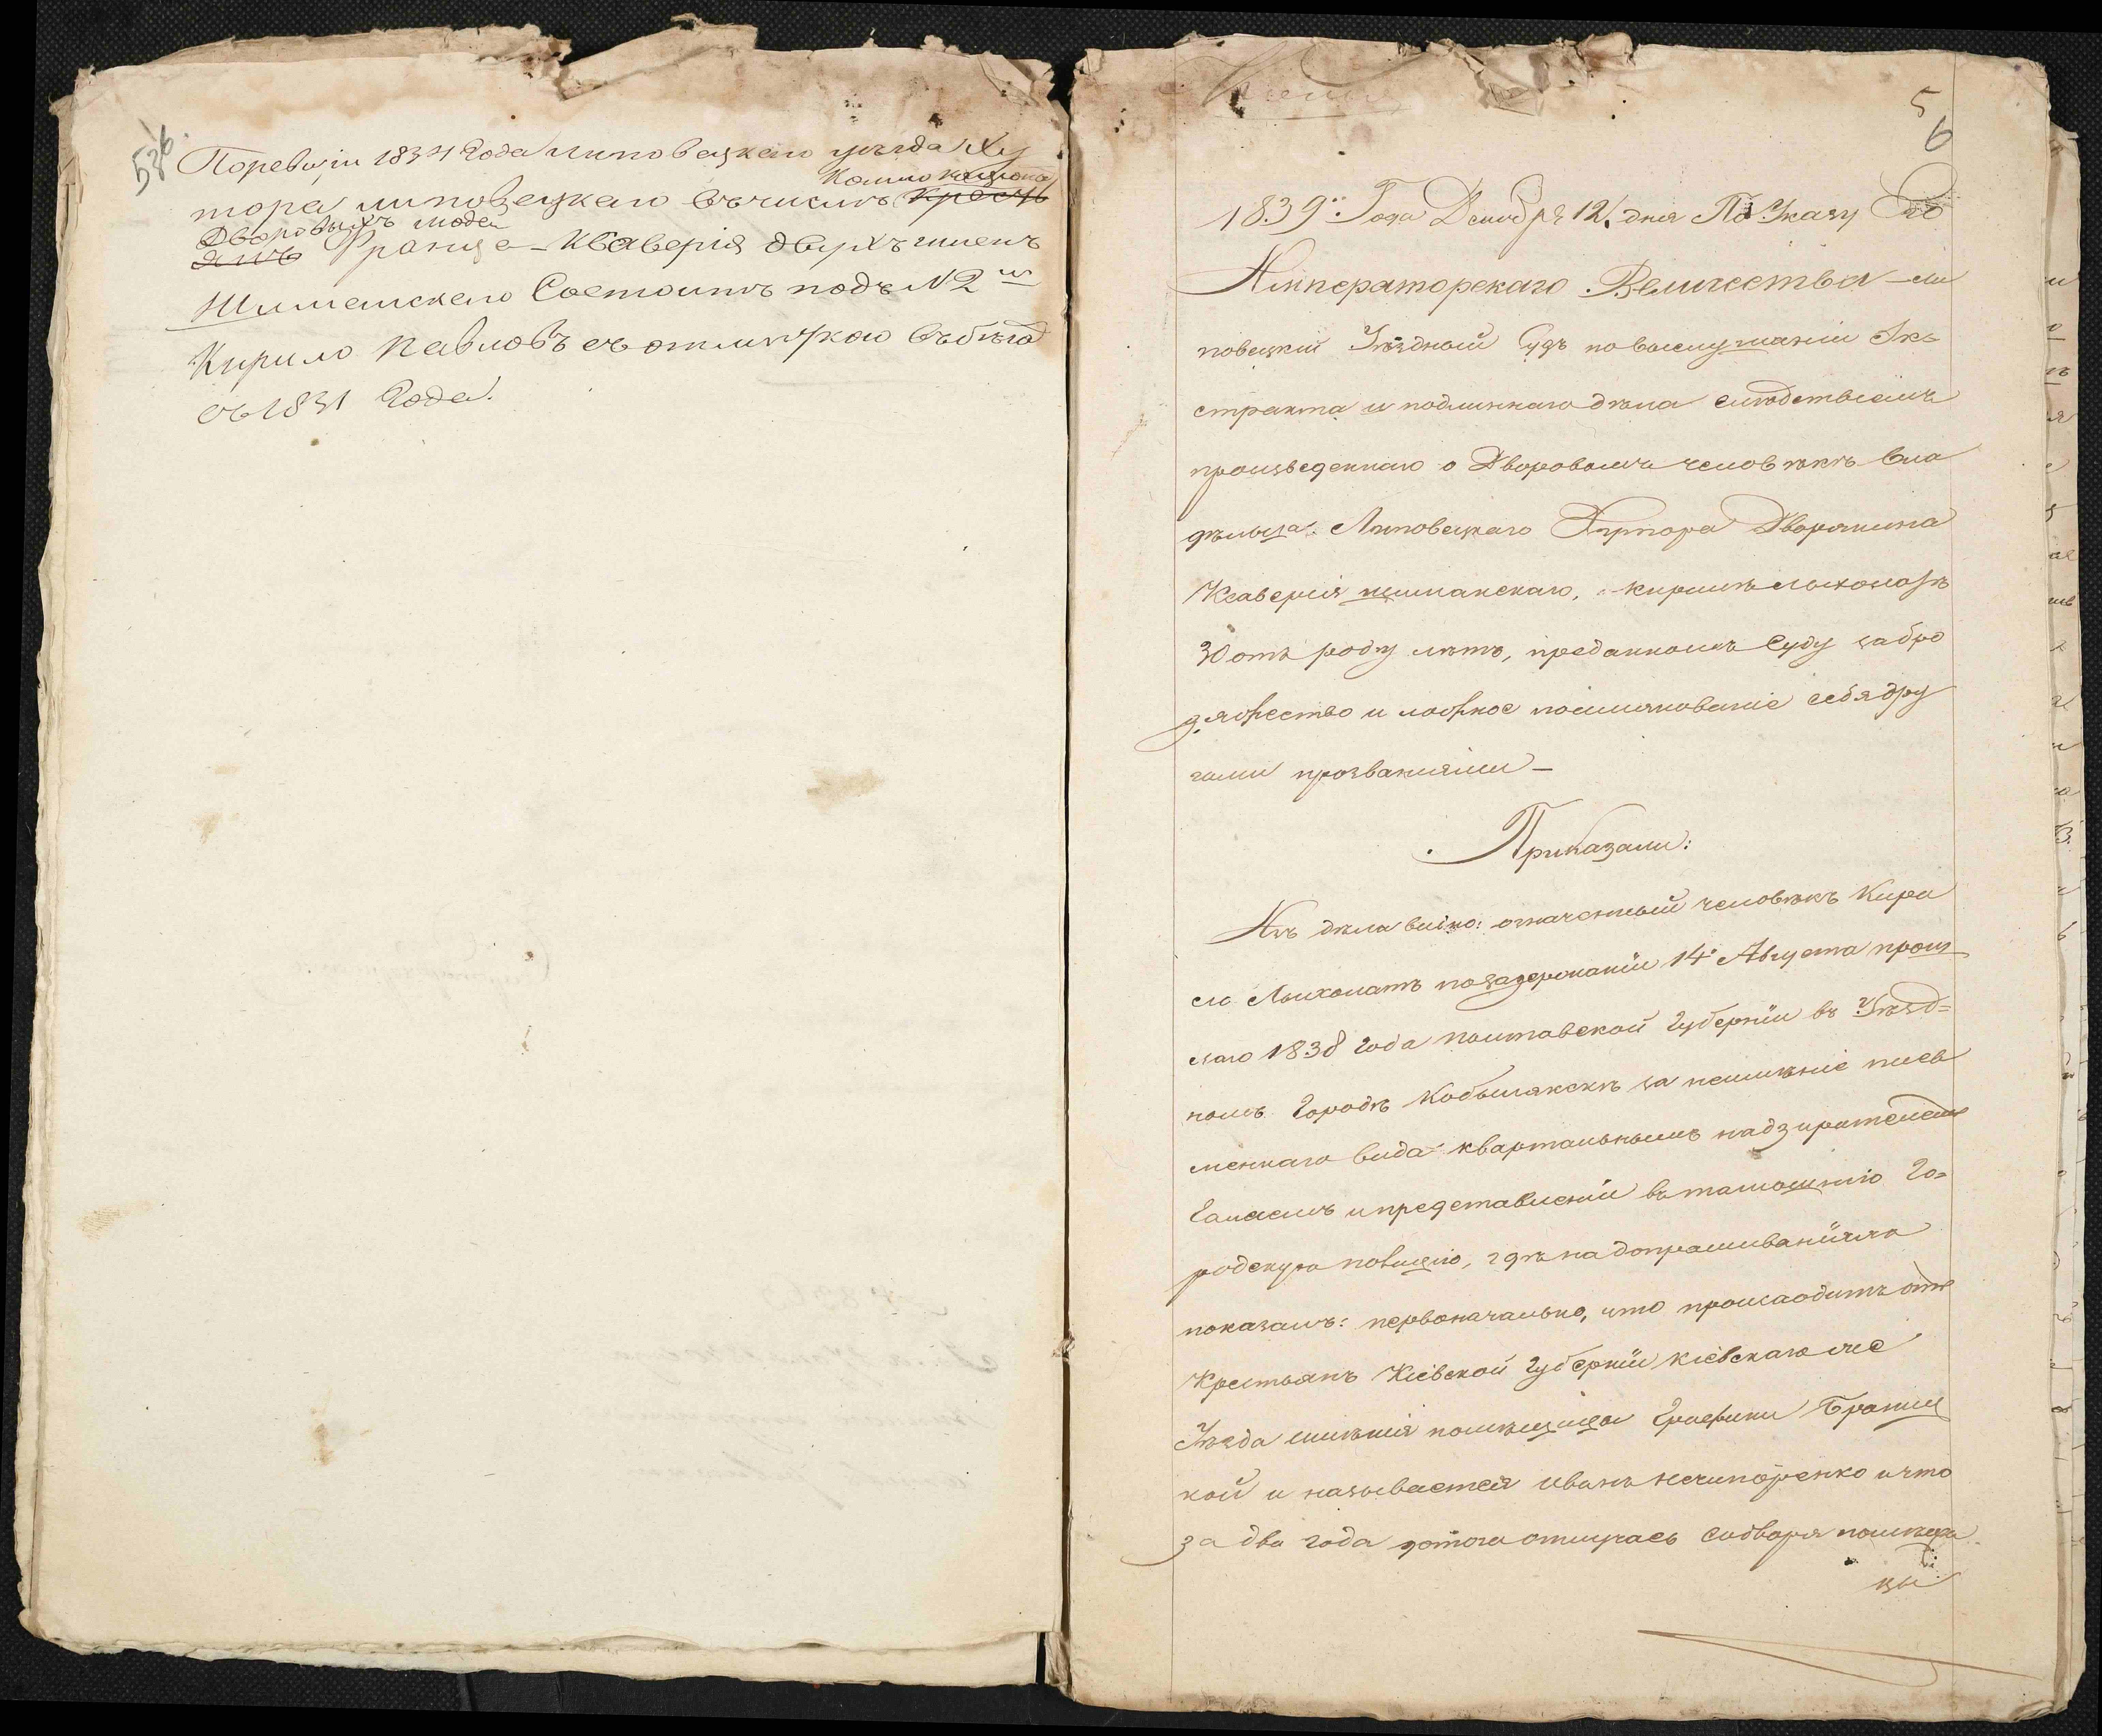 58 б.
Поревизіи 1834 Года липовецкаго уѣзда Ху
тора липовецкаго Въчислѣ Крестъ
янъ
Дворовыхъ людей
Франце-Ксаверія двухъ именъ
Шиманскаго Состоитъ подъ №2мъ
Кирило Павловъ съ отмѣткою Въбѣгѣ
съ 1831 Года.
5
6
1839: Года Декабря 12 дня По Указу Его
Императорскаго Величества – Ли
повецкій Уѣздный Судъ по выслушаніи Эк
стракта и подлиннаго дѣла слѣдствіемъ
произведеннаго о Дворовомъ человѣкѣ Вла
дѣльца Липовецкаго Хутора Дворянина
Ксаверія шиманскаго, кирилѣ
30 отъ роду лѣтъ, преданномъ Суду за бро
дяжество и ложное поименованіе себя дру
гими прозваніями –
Приказали:
Изъ дѣла видно: означенный человѣкъ Кири
ло по задержаніи 14 Августа прош
лаго 1838 Года полтавской Губерніи въ Уѣзд=
номъ Городѣ Кобылякскѣ за неимѣніе пись
меннаго вида квартальнымъ надзирателемъ
и представленіи въ тамошнюю Го=
родскую полицію, гдѣ на допрашиваніи
показалъ: первоначально, что происходитъ отъ
Крестьянъ Кіевской Губерніи кіевскаго же
Уѣзда имѣнія помѣщицы Графини Браниц
кой и называется иванъ нечипоренко и что
за два года дотого отлучась Содвора помѣщи
цы